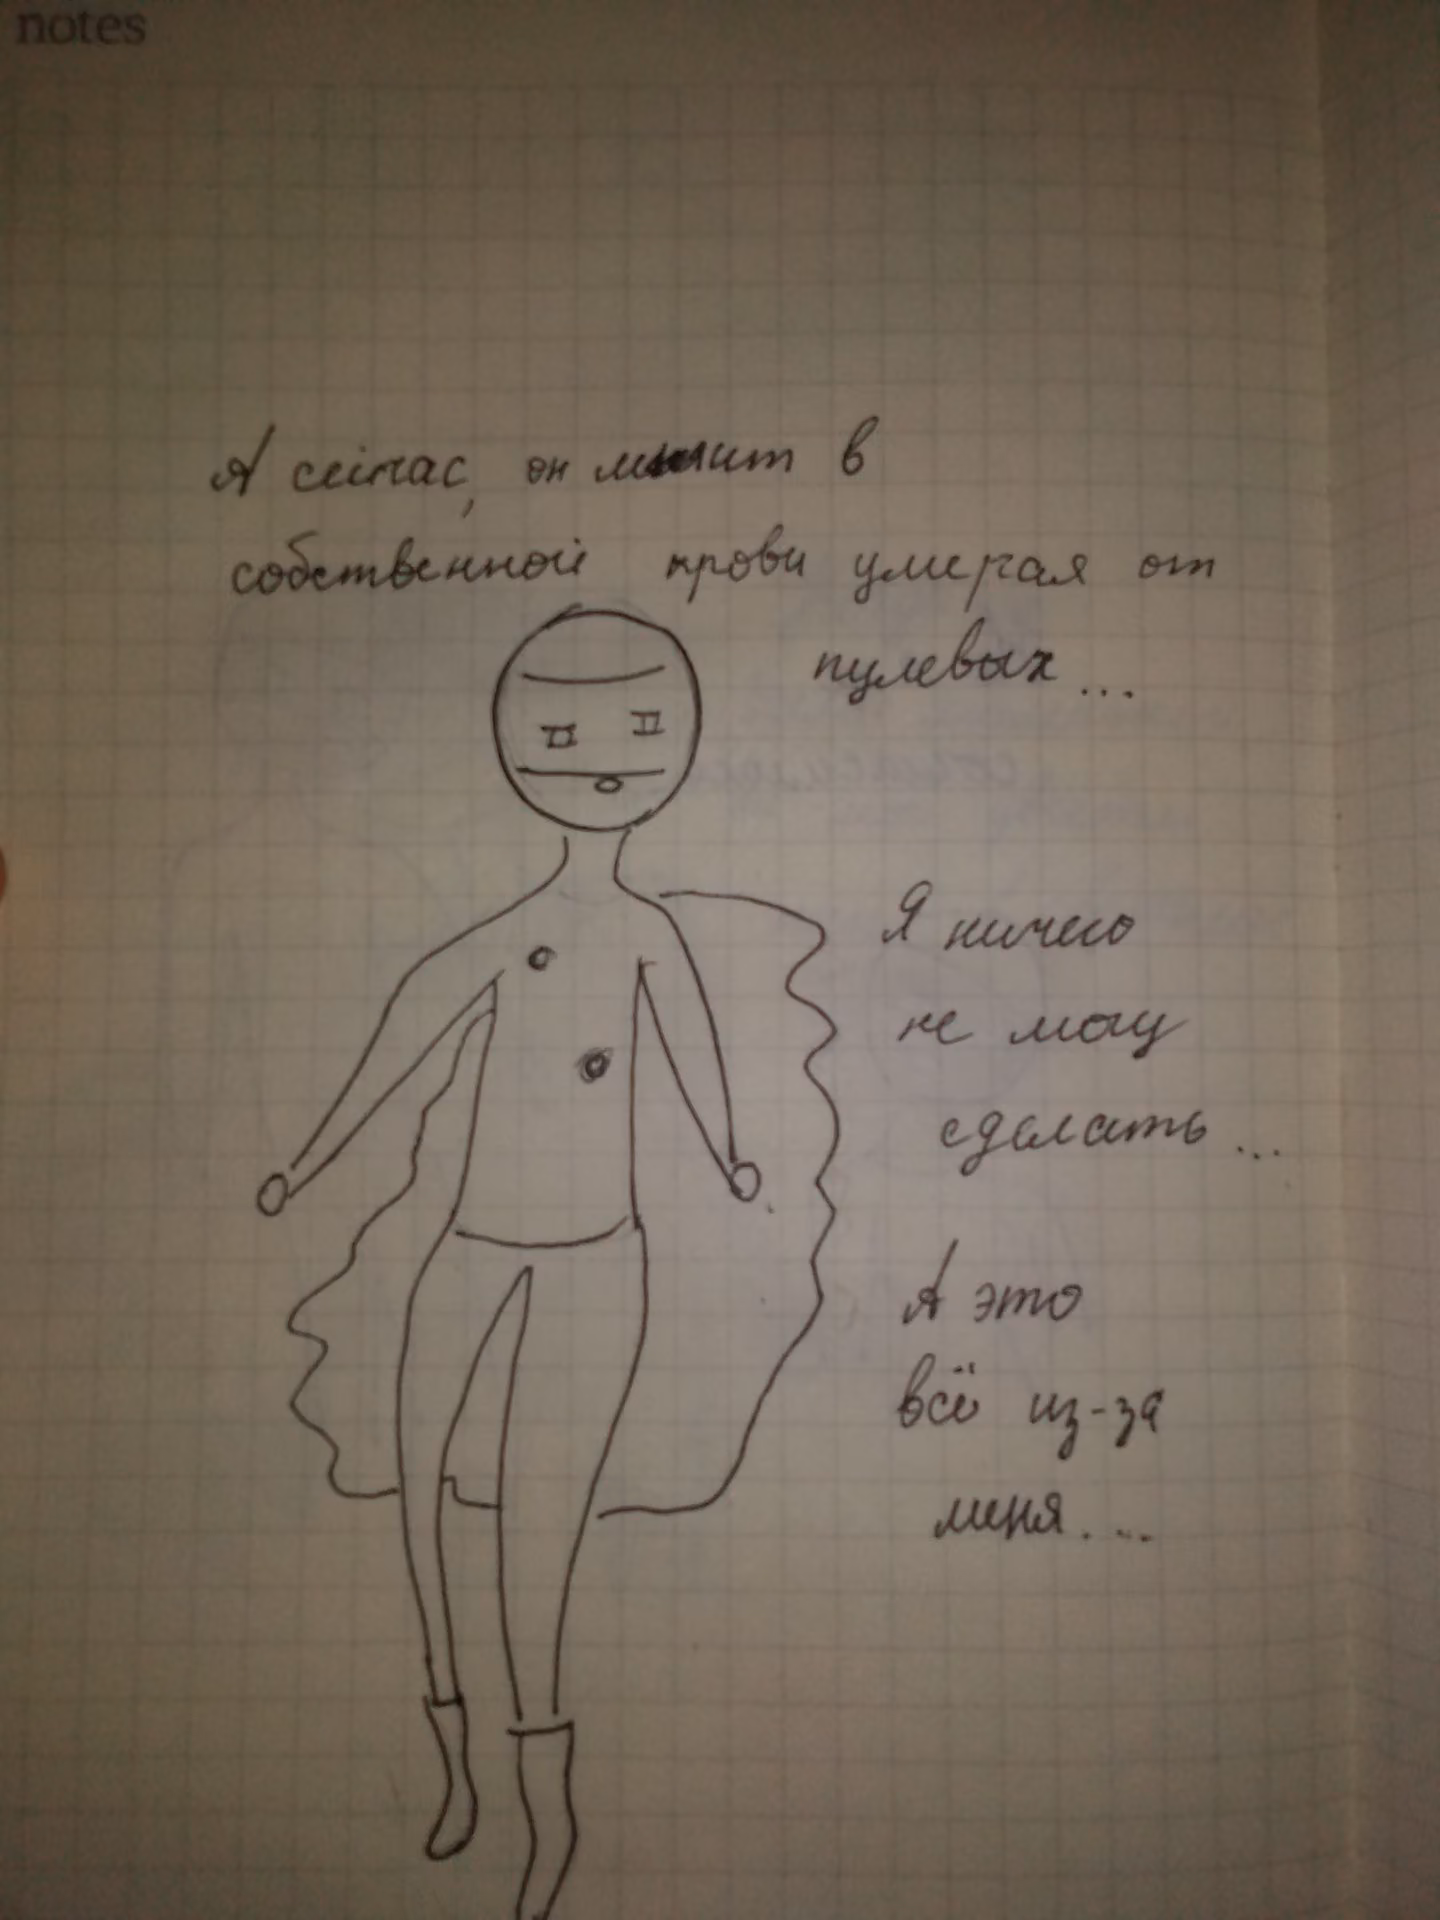 notes
А сейчас, он лежит в
собственной крови умирая от
пулевых ...
Я ничего
не могу
сделать ...
А это
всё из-за
меня. ...